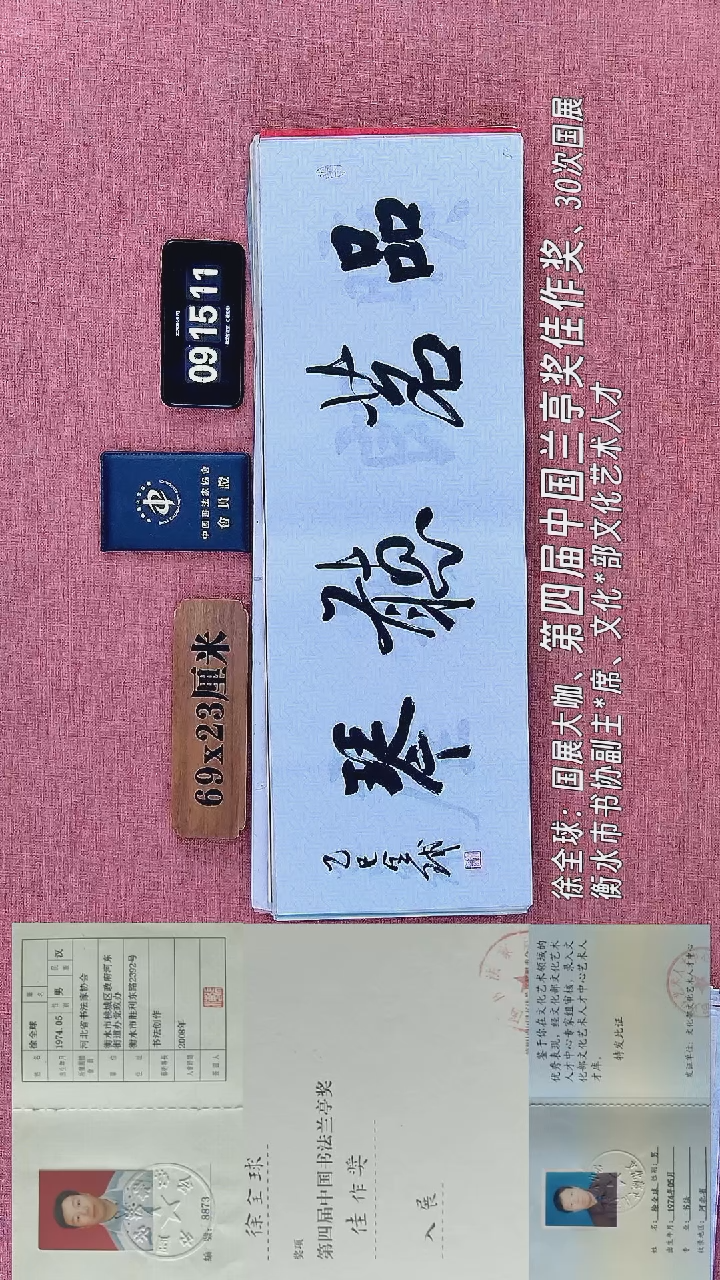 69x23厘米
中国书法家协会
會員證
09 15 11
品茗聽琴
乙巳全球
徐全球：国展大咖、第四届中国兰亭奖佳作奖、30次国展
衡水市书协副主*席、文化*部文化艺术人才
编号：8873
姓名 徐全球
1974.05 男 汉
河北省书法家协会
衡水市桃城区政府河东
街道办党政办
衡水市胜利东路2392号
书法创作
2008年
徐全球
奖项
第四届中国书法兰亭奖
佳作奖
入展
姓名：徐全球 性别：男
出生年月：1974年05月
专业：书法
鉴于你在文化艺术领域的
优秀表现，经文化部文化艺术
人才中心专家组审核，录入文
化部文化艺术人才中心艺术人
才库。
特发此证
发证单位：文化部文化艺术人才中心